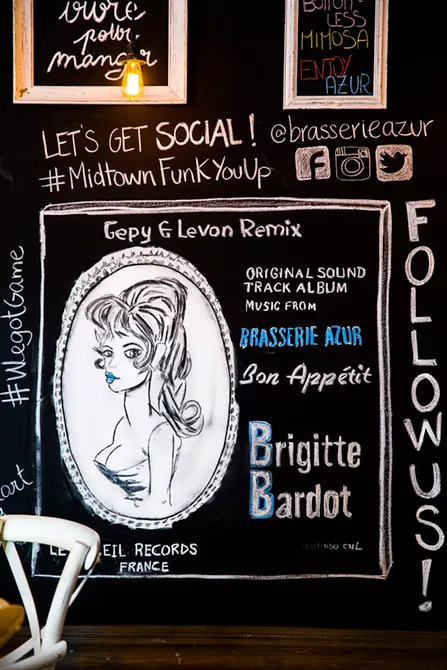 vivre
pour
manger
BOTTOM-
LESS
MIMOSA
ENJOY
AZUR
LET'S GET SOCIAL! @brasserieazur
#MidtownFunkYouUp
Gepy & Levon Remix
ORIGINAL SOUND
TRACK ALBUM
MUSIC FROM
BRASSERIE AZUR
Bon Appétit
Brigitte
Bardot
RECORDS
FRANCE
#WegotGame
FOLLOW US!